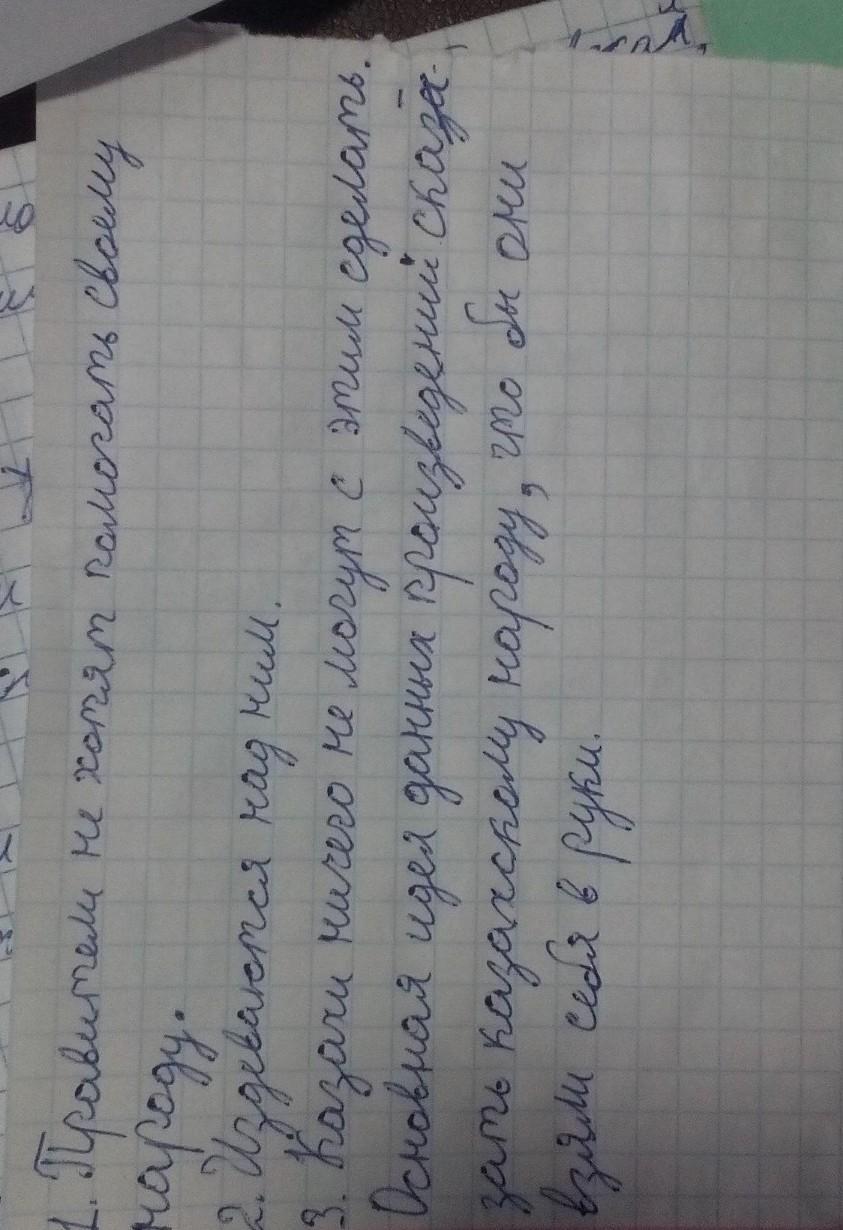 1. Правители не хотят помогать своему
народу.
2. Издеваются над ним.
3. Казачи ничего не могут с этим сделать.
Основная идея данных произведений сказа-
зать казахскому народу, что бы они
взяли себя в руки.